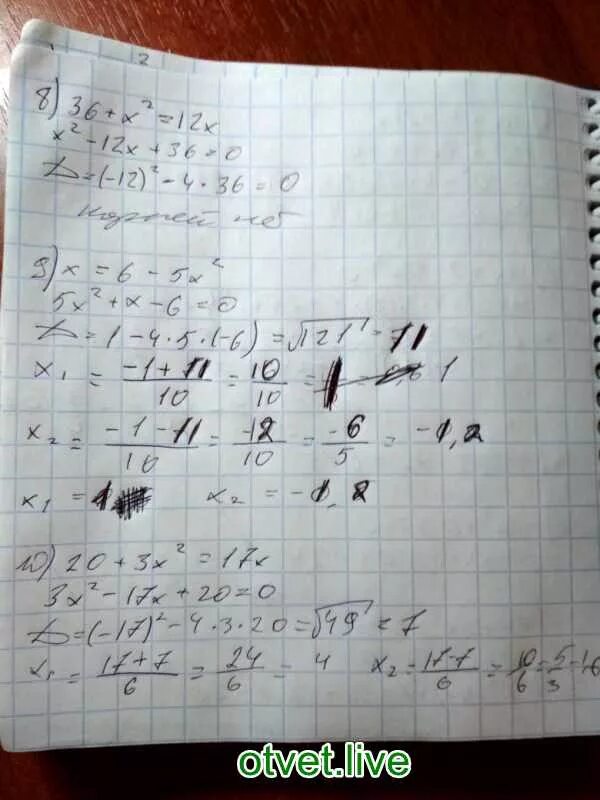 8) 36 + x² = 12x
x² - 12x + 36 = 0
D = (-12)² - 4 · 36 = 0
корней нет
9) x = 6 - 5x²
5x² + x - 6 = 0
D = (1 - 4 · 5 · (-6) = √121 = 11
x₁ = (-1 + 11)/10 = 10/10 = 1
x₂ = (-1 - 11)/10 = -12/10 = -6/5 = -1,2
x₁ = 1 x₂ = -1,2
10) 20 + 3x² = 17x
3x² - 17x + 20 = 0
D = (-17)² - 4 · 3 · 20 = √49 = 7
x₁ = (17 + 7)/6 = 24/6 = 4 x₂ = (17 - 7)/6 = 10/6 = 5/3 = 1,6
otvet.live